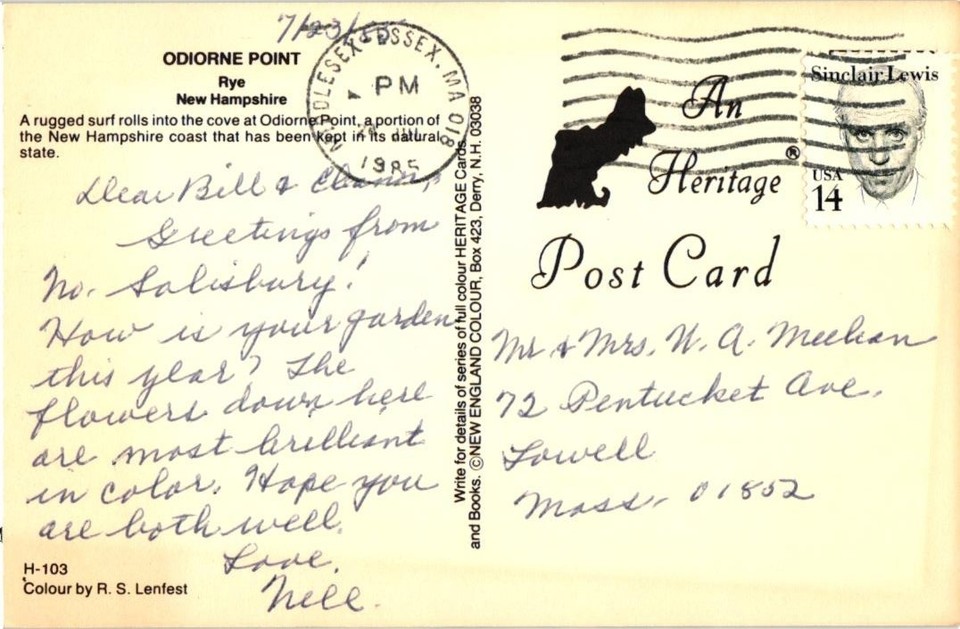 7/23/85
ODIORNE POINT
Rye
New Hampshire
A rugged surf rolls into the cove at Odiorne Point, a portion of
the New Hampshire coast that has been kept in its natural
state.
Dear Bill &
Greetings from
No. Salisbury!
How is your garden
this year? The
flowers down here
are most brilliant
in color. Hope you
are both well.
Love,
Nell.
H-103
Colour by R. S. Lenfest
MIDDLESEX-ESSEX, MA 018
PM
JUL
1985
Write for details of series of full colour HERITAGE Cards
and Books. ©NEW ENGLAND COLOUR, Box 423, Derry, N.H. 03038
An
Heritage ®
Post Card
Sinclair Lewis
USA
14
Mr & Mrs. W. A. Meehan
72 Pentucket Ave.
Lowell
Mass. 01852